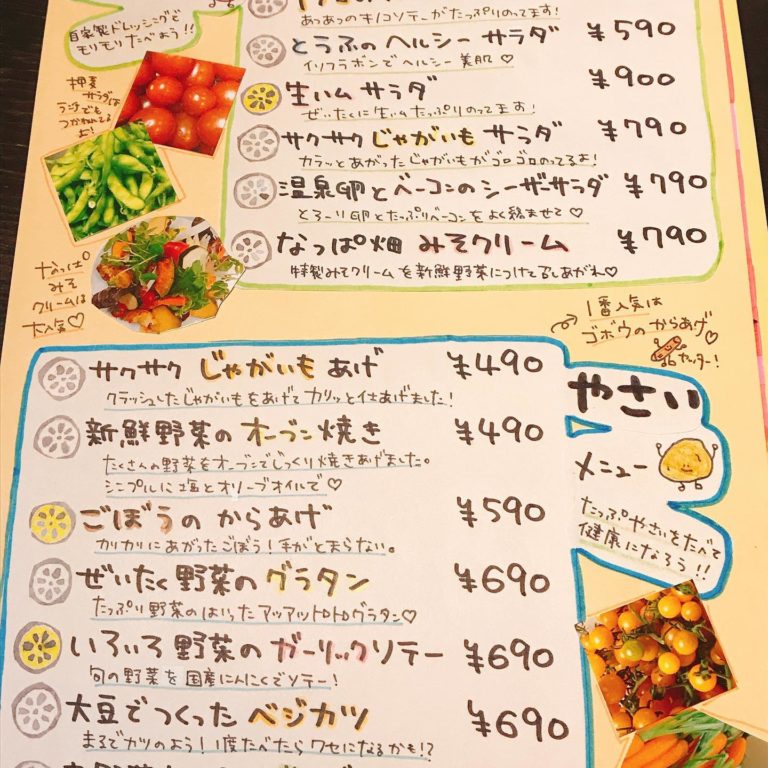 自家製ドレッシングで
モリモリたべよう!!
あつあつのキノコソテーがたっぷりのってます!
とうふの ヘルシー サラダ ¥590
イソフラボンでヘルシー 美肌♡
生ハム サラダ ¥900
ぜいたくに生ハムたっぷりのってます!
サクサク じゃがいも サラダ ¥790
カラッとあがったじゃがいもがゴロゴロのってるよ!
温泉卵とベーコンのシーザーサラダ ¥790
とろ〜り卵とたっぷりベーコンをよく絡ませて♡
なっぱ畑 みそクリーム ¥790
特製みそクリームを新鮮野菜につけて召しあがれ♡
押麦
サラダは
なっぱ
みそ
クリームは
大人気♡
1番人気は
ゴボウのからあげ♡
サクサク じゃがいも あげ ¥490
クラッシュしたじゃがいもをあげてカリッと仕あげました!
新鮮野菜の オーブン焼き ¥490
たくさんの野菜をオーブンでじっくり焼きあげました。
シンプルに塩とオリーブオイルで♡
ごぼうの からあげ ¥590
カリカリにあがったごぼう!手がとまらない。
ぜいたく 野菜の グラタン ¥690
たっぷり野菜のはいったアツアツトロトログラタン♡
いろいろ 野菜の ガーリックソテー ¥690
旬の野菜を国産にんにくでソテー!
大豆でつくった ベジカツ ¥690
まるでカツのよう!1度たべたらクセになるかも!?
やさい
メニュー
たっぷやさいをたべて
健康になろう!!